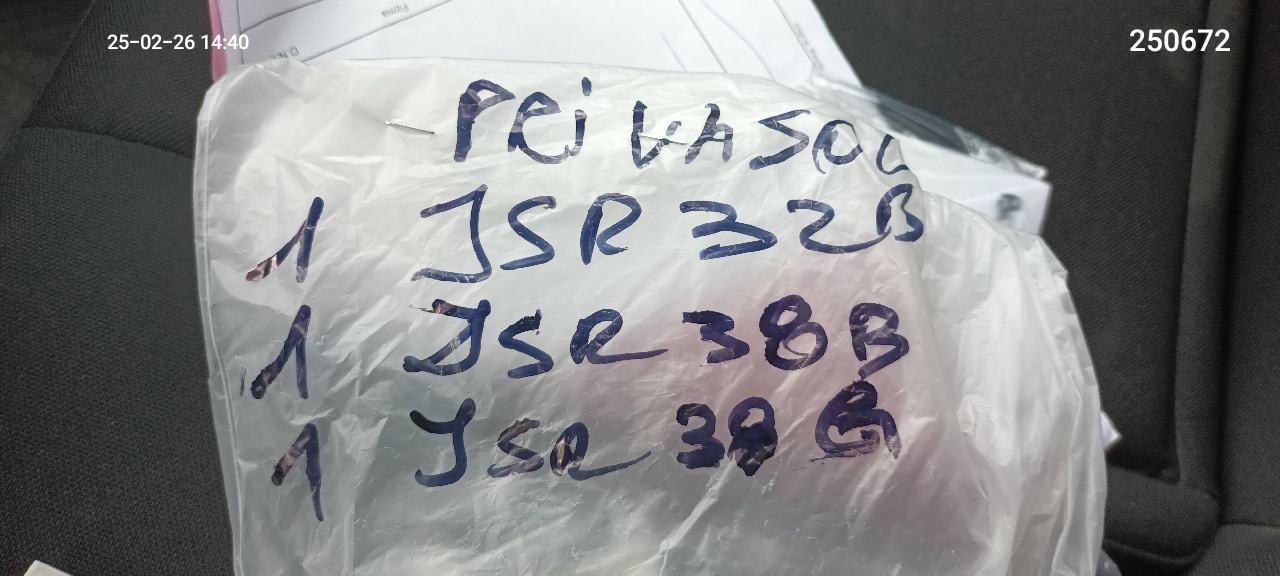 25-02-26 14:40
250672
Firma
D.N.I.
1 JSR 32B
1 JSR 38B
1 JSR 38